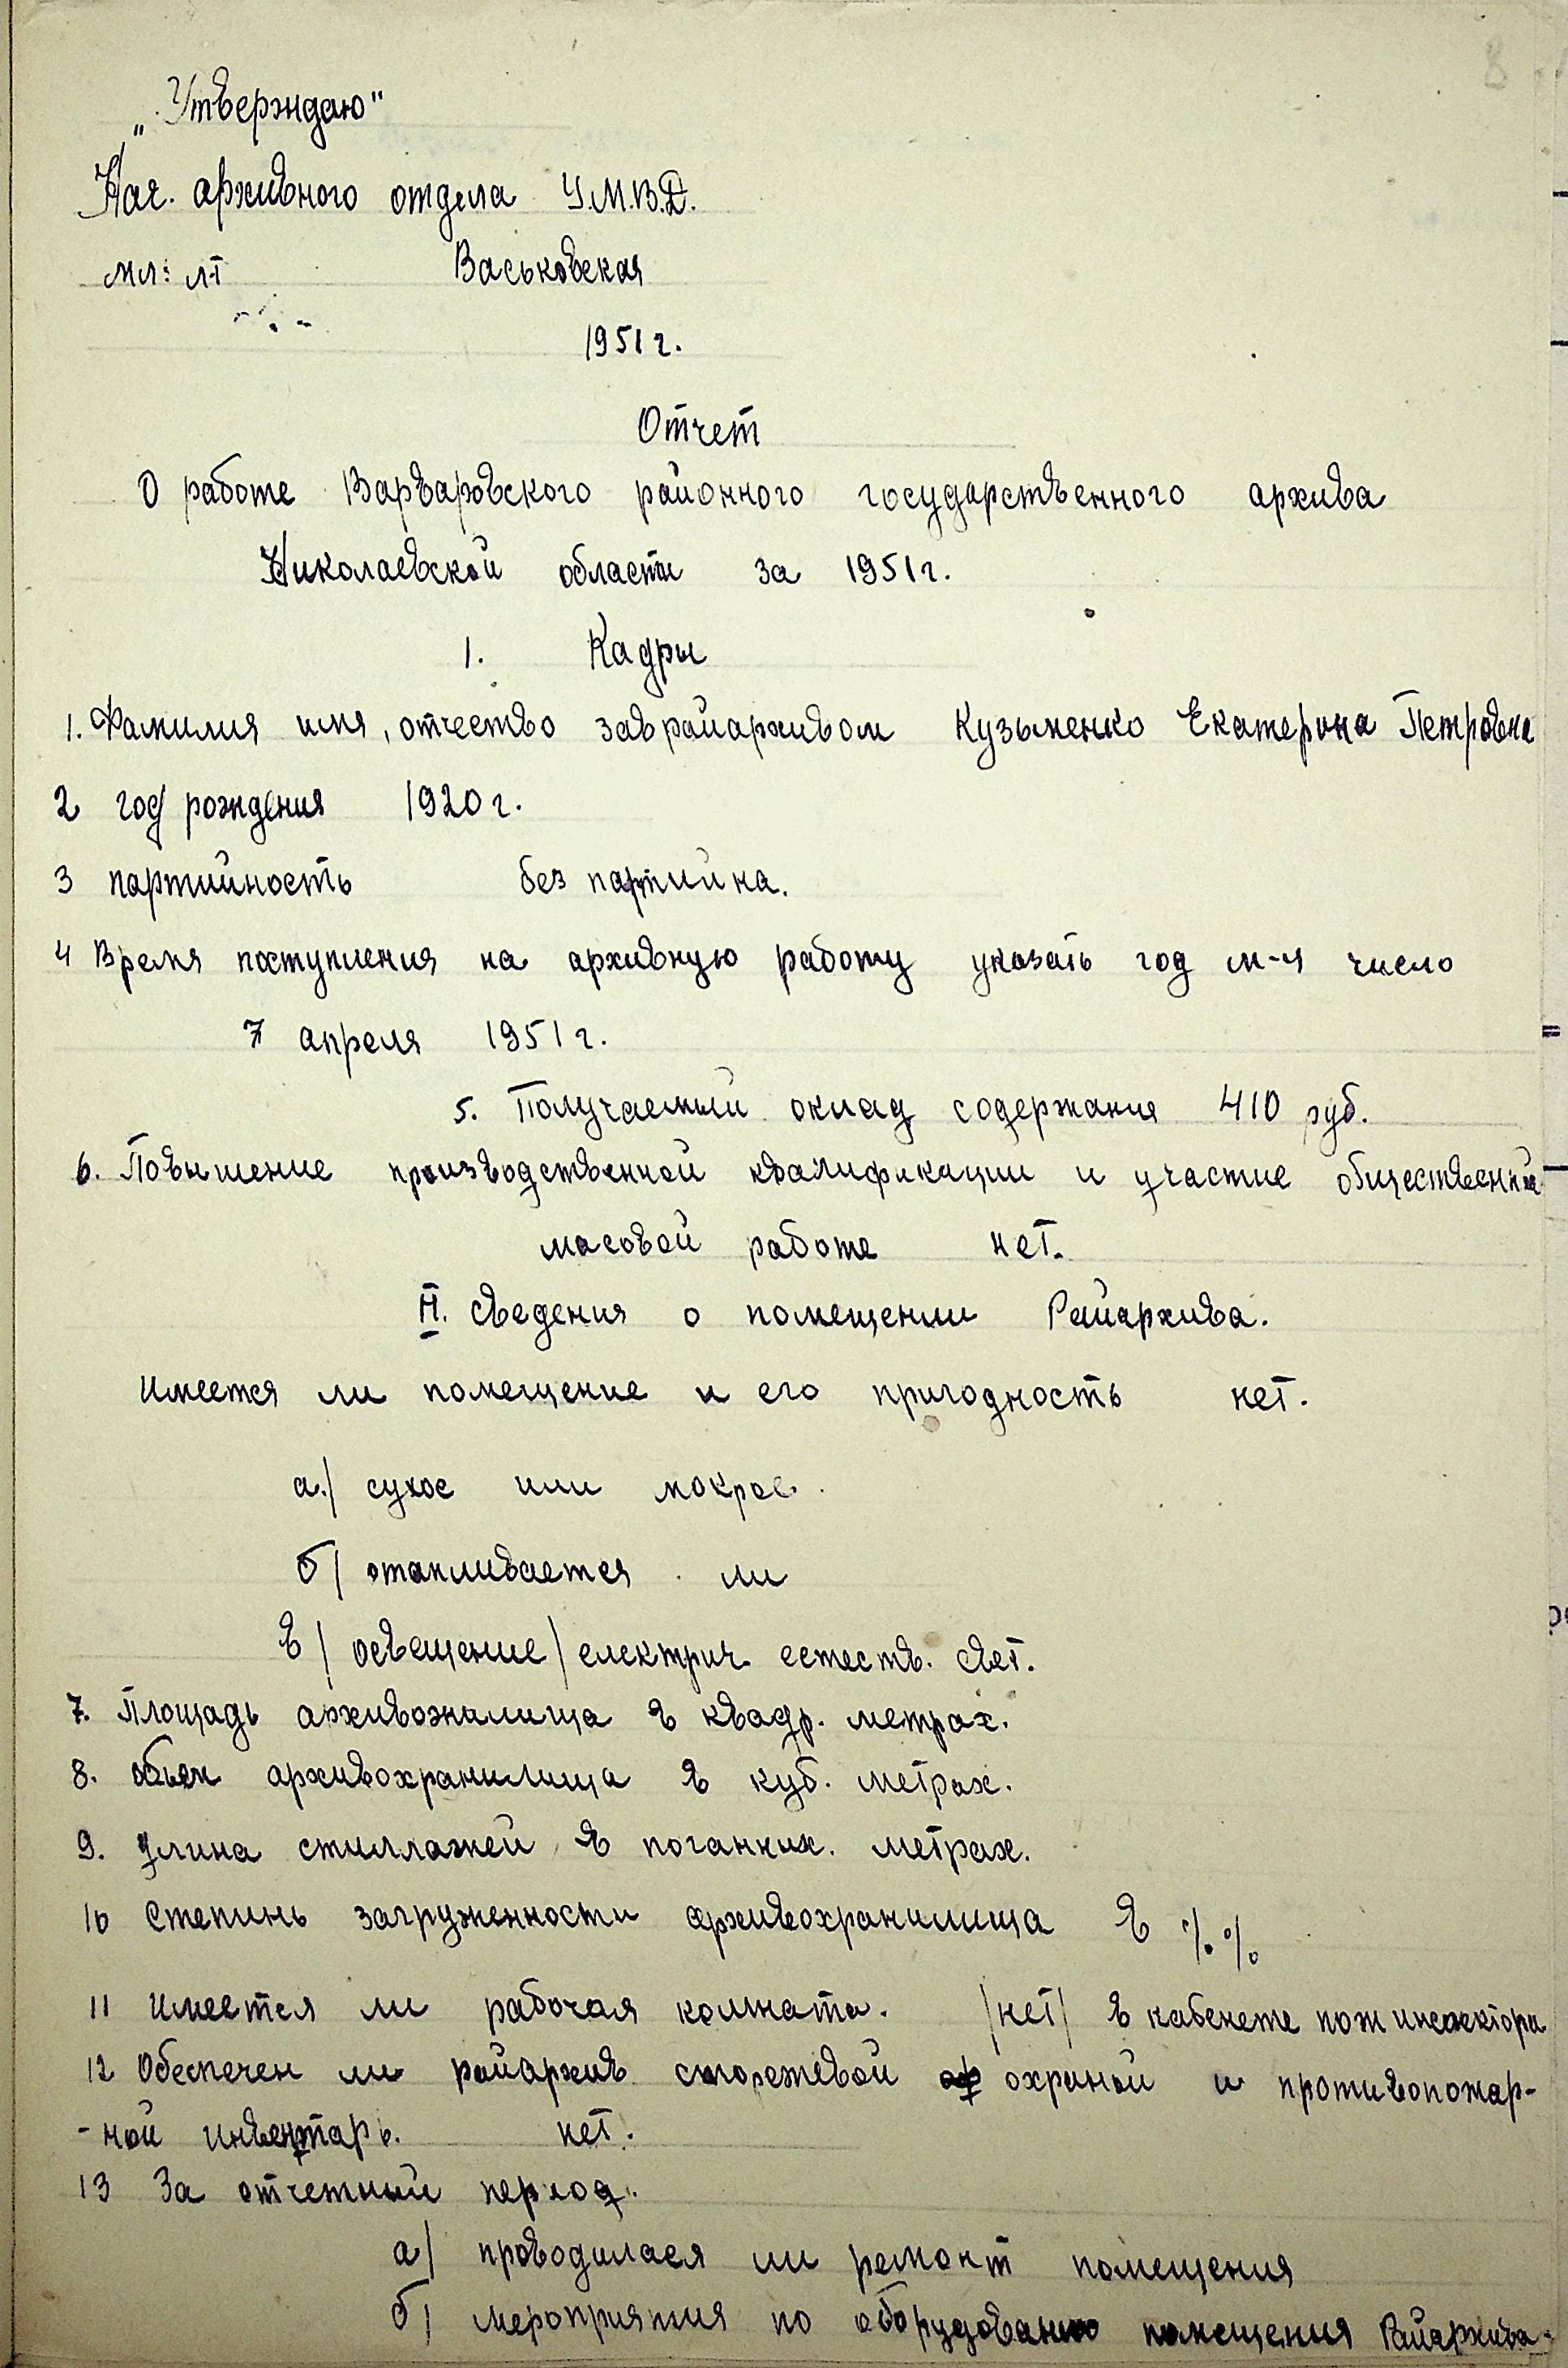 8
„Утверждаю"
Нач. архивного отдела У.М.В.Д.
мл: лт Васьковская
1951 г.
Отчет
О работе Варваровского районного государственного архива
Николаевской области за 1951 г.
1. Кадры
1. Фамилия имя, отчество заврайархивом Кузьменко Екатерина Петровна
2 год рождения 1920 г.
3 партийность без партийна.
4 Время поступления на архивную работу указать год м-ц число
7 апреля 1951 г.
5. Получаемый оклад содержания 410 руб.
6. Повышение производственной квалификации и участие общественной
масовой работе нет.
II. Сведения о помещении Райархива.
Имеется ли помещение и его пригодность нет.
а/ сухое или мокрое.
б/ отапливается ли
в/ освещение/ електрич естеств. свет.
7. Площадь архивохналища в квадр. метрах.
8. обьем архивохранилища в куб. метрах.
9. Длина стиллажей в поганних. метрах.
10 Степинь загруженности архивохранилища в %%
11 Имеется ли рабочая комната. /нет/ в кабенете пож инспектора
12 Обеспечен ли райархив сторежевой охраной и противопожар-
-ной инвентарь. нет.
13 За отчетный период.
а/ проводилася ли ремонт помещения
б/ мероприятия по оборудованию помещения Райархива.